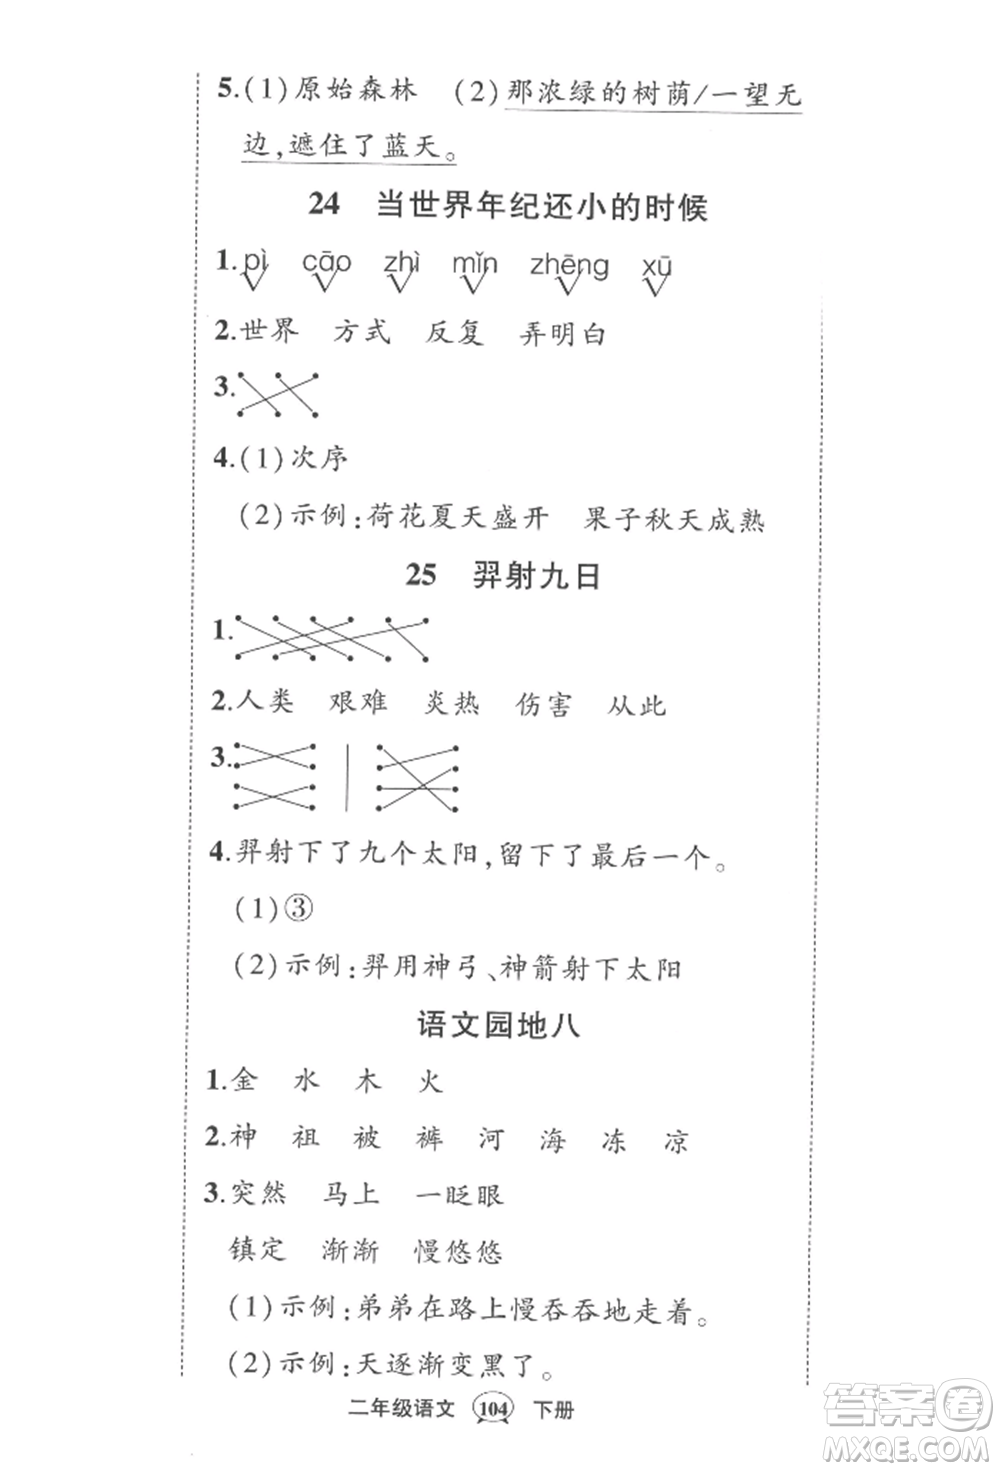 5.(1)原始森林 (2)那浓绿的树荫/一望无
边,遮住了蓝天。
24 当世界年纪还小的时候
1.pì cāo zhì mǐn zhēng xū
2.世界 方式 反复 弄明白
3.
4.(1)次序
(2)示例:荷花夏天盛开 果子秋天成熟
25 羿射九日
1.
2.人类 艰难 炎热 伤害 从此
3.
4.羿射下了九个太阳,留下了最后一个。
(1)③
(2)示例:羿用神弓、神箭射下太阳
语文园地八
1.金 水 木 火
2.神 祖 被 裤 河 海 冻 凉
3.突然 马上 一眨眼
镇定 渐渐 慢悠悠
(1)示例:弟弟在路上慢吞吞地走着。
(2)示例:天逐渐变黑了。
二年级语文 104 下册
答案卷
MXQE.COM